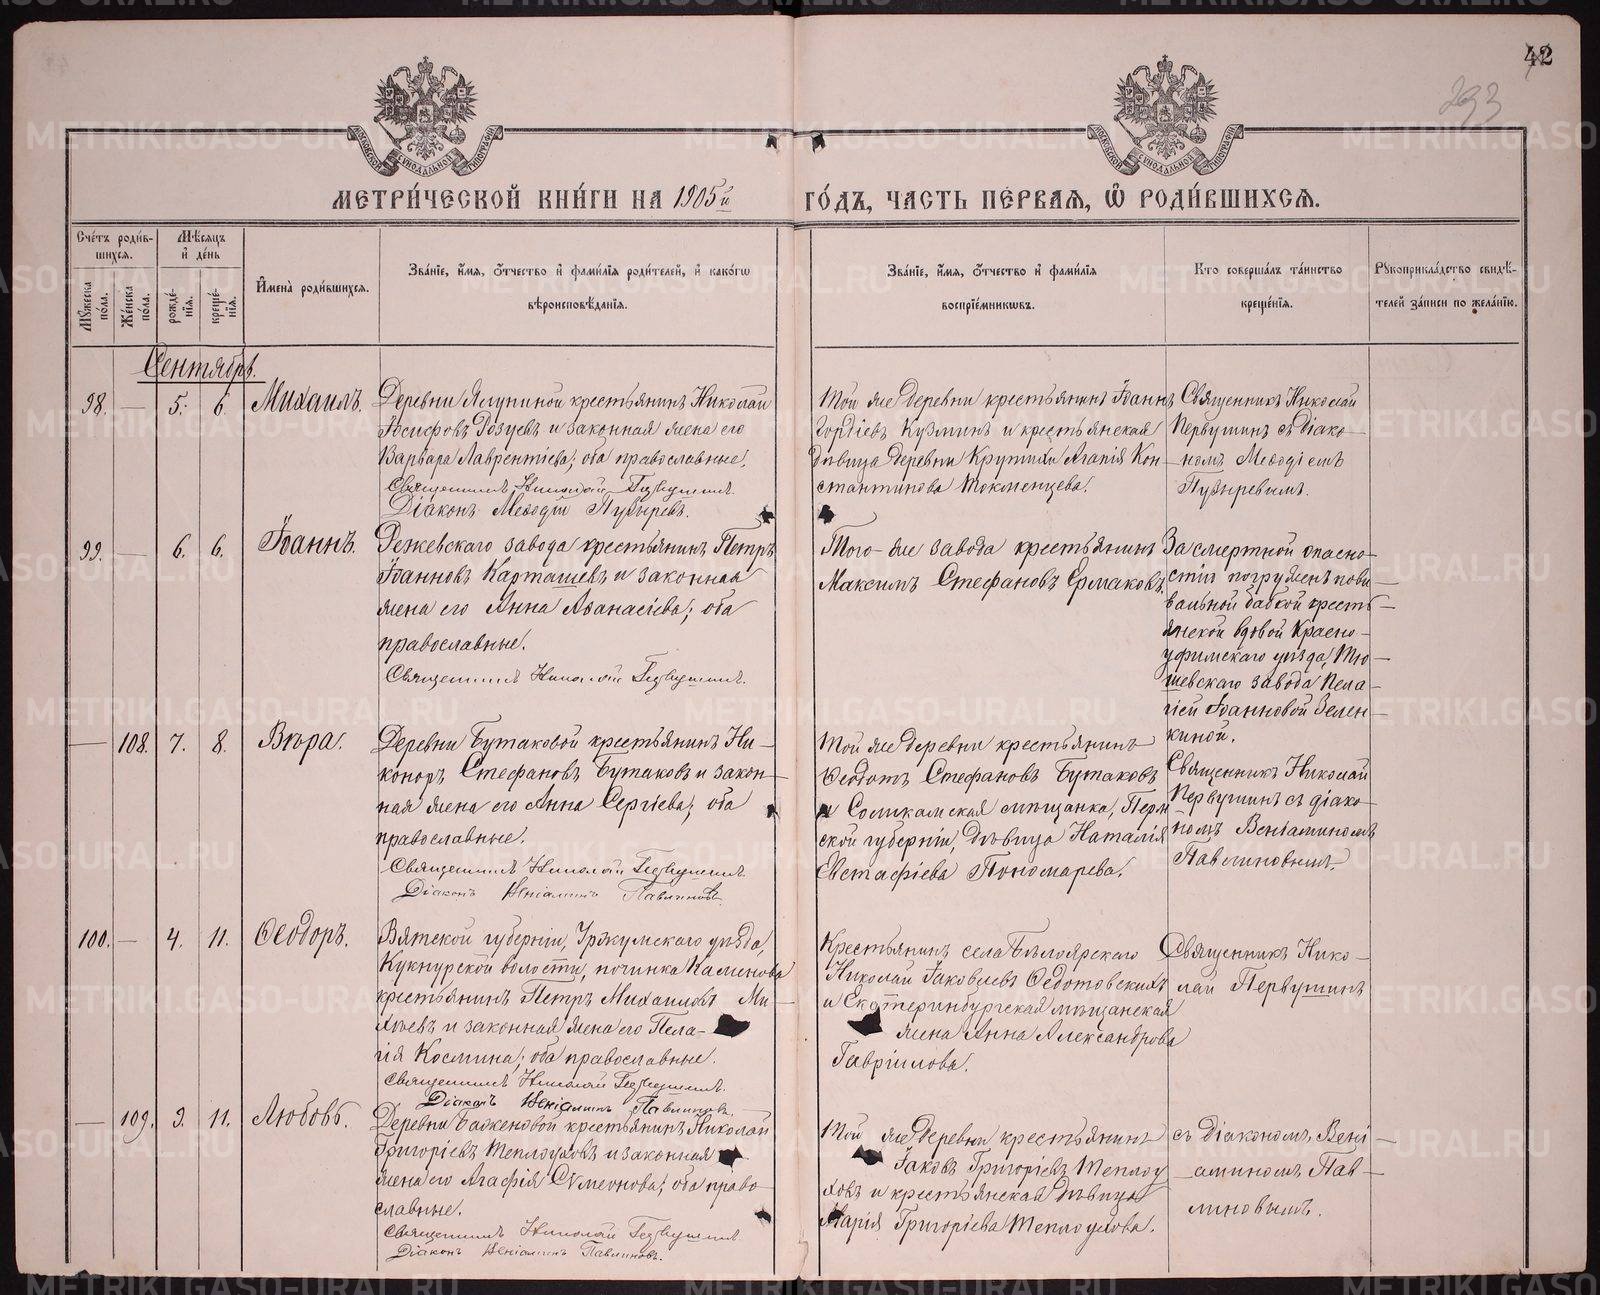 42
293
МЕТРИ́ЧЕСКОЙ КНИ́ГИ НА 1905й ГО́ДЪ, ЧАСТЬ ПЕ́РВАЯ, Ѡ РОДИ́ВШИХСЯ.
Сче́тъ роди́вшихся.
Мꙋ́жеска по́ла.
Же́нска по́ла.
Мѣ́сяцъ и де́нь
рожде́нія.
креще́нія.
И҆мена̀ роди́вшихся.
Зва́ніе, и҆́мя, о҆́тчество и҆ фами́лія роди́телей, и҆ како́гѡ
вѣроисповѣ́данія.
Зва́ніе, и҆́мя, о҆́тчество и҆ фами́лія
воспріе́мникѡвъ.
Кто соверша́лъ та́инство
креще́нія.
Рꙋкоприкла́дство свидѣ́-
телей за́писи по жела́нію.
Сентябрь.
98. — 5. 6. Михаилъ.
Деревни Ялуниной крестьянинъ Николай
Іосифовъ Розуевъ и законная жена его
Варвара Лаврентіева; оба православные.
Священникъ Николай Первушинъ.
Діаконъ Меѳодій Пузыревъ.
Той же деревни крестьянинъ Іоаннъ
Гордіевъ Кузминъ и крестьянская
дѣвица деревни Крутихи Агапія Кон-
стантинова Токменцева.
Священникъ Николай
Первушинъ съ діако-
номъ Меѳодіемъ
Пузыревымъ.
99. — 6. 6. Іоаннъ.
Режевскаго завода крестьянинъ Петръ
Іоанновъ Карташевъ и законная
жена его Анна Аѳанасіева; оба
православные.
Священникъ Николай Первушинъ.
Того-же завода крестьянинъ
Максимъ Стефановъ Ермаковъ.
За смертной опасно-
стію погруженъ пови-
вальной бабкой кресть-
янской вдовой Красно-
уфимскаго уѣзда,
шевскаго завода Пела-
гіей Іоанновой Зелен-
киной.
— 108. 7. 8. Вѣра.
Деревни Бутаковой крестьянинъ Ни-
коноръ Стефановъ Бутаковъ и закон-
ная жена его Анна Сергіева; оба
православные.
Священникъ Николай Первушинъ.
Діаконъ Веніаминъ Павлиновъ.
Той же деревни крестьянинъ
Ѳеодотъ Стефановъ Бутаковъ
и Соликамская мѣщанка, Перм
ской губерніи, дѣвица Наталія
Евстафіева Пономарева.
Священникъ Николай
Первушинъ съ діако-
номъ Веніаминомъ
Павлиновымъ.
100. — 4. 11. Ѳеодоръ.
Вятской губерніи, Уржумскаго уѣзда,
Кукнурской волости, починка Каменова
крестьянинъ Петръ Михаиловъ Ми-
хѣевъ и законная жена его Пела-
гія Космина; оба православные.
Священникъ Николай Первушинъ.
Діаконъ Веніаминъ Павлиновъ.
Крестьянинъ села Бѣлоярскаго
Николай Іаковлевъ Ѳедотовскихъ
и Екатеринбургская мѣщанская
жена Анна Александрова
Гавріилова.
Священникъ Нико-
лай Первушинъ
— 109. 9. 11. Любовь.
Деревни Баженовой крестьянинъ Николай
Григоріевъ Теплоуховъ и законная
жена его Агафія Сѵмеонова; оба право-
славные.
Священникъ Николай Первушинъ.
Діаконъ Веніаминъ Павлиновъ.
Той же деревни крестьянинъ
Іаковъ Григоріевъ Теплоу
ховъ и крестьянская дѣвица
Марія Григоріева Теплоухова.
съ діакономъ Вені-
аминомъ Пав-
линовымъ.
METRIKI.GASO-URAL.RU